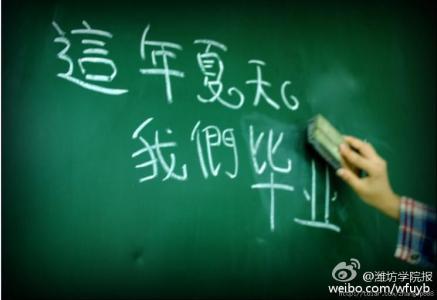 這年夏天。
我們毕业
@潍坊学院报
weibo.com/wfuyb